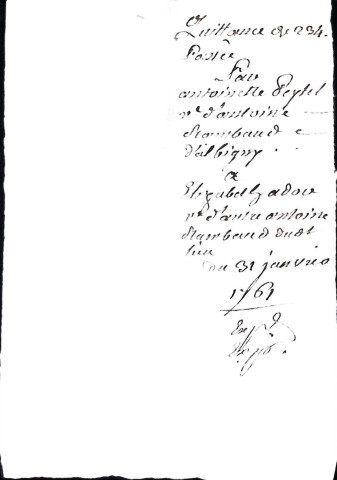 Quittance de 234.
Passée
Par
antoinette Peytel
v.e d'antoine
Rambaud
d'albigny.
a
Elizabeth adou
v.e d'autre antoine
Rambaud dudt
lieu
du 31 janvier
1761
Exp.é